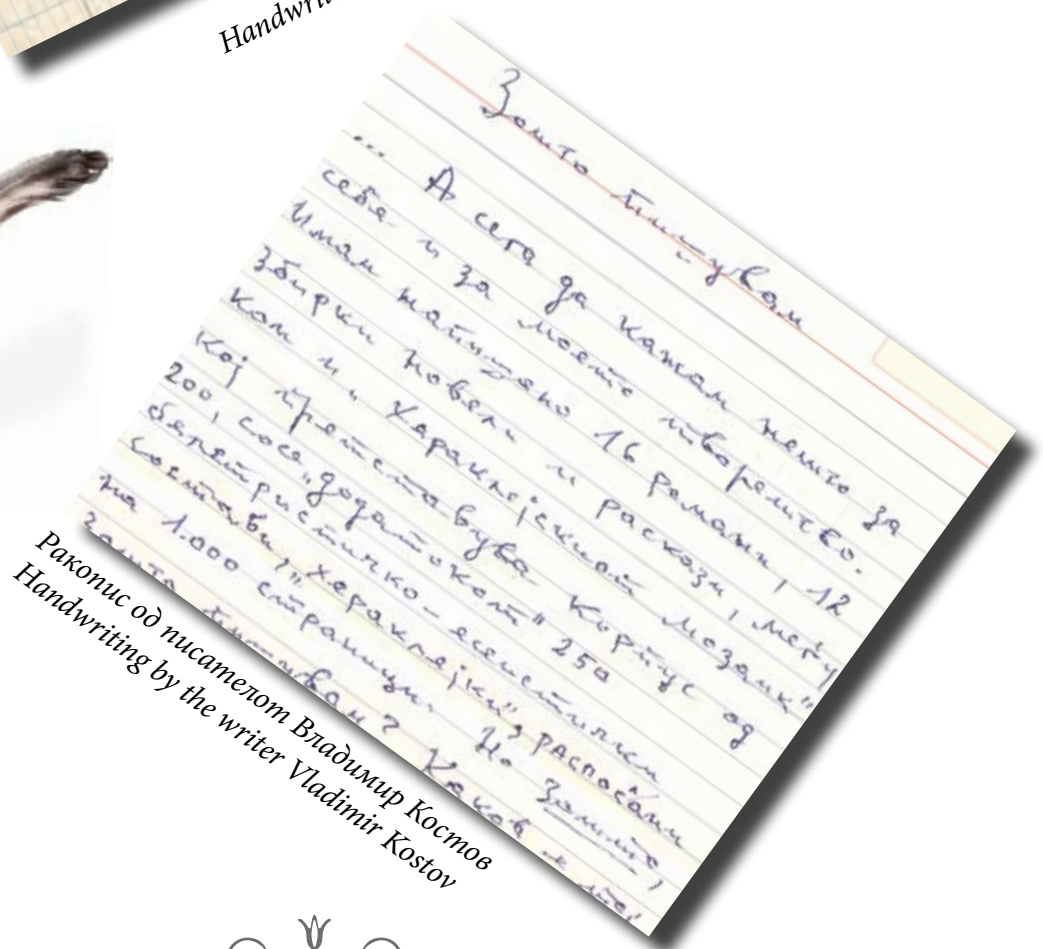 Handwri
Зошто пишувам
... А сега да кажам нешто за
себе и за моето творештво.
Имам напишано 16 романи, 12
збирки новели и раскази, меѓу
кои и „Хераклејскиот мозаик"
кој претставува корпус од
200, сосе „додатокот" 250
белетристичко-есеистички
состави, „хераклејки",
на 1.000 страници. Но зошто,
зошто пишувам? Каков е
Ракопис од писателот Владимир Костов
Handwriting by the writer Vladimir Kostov